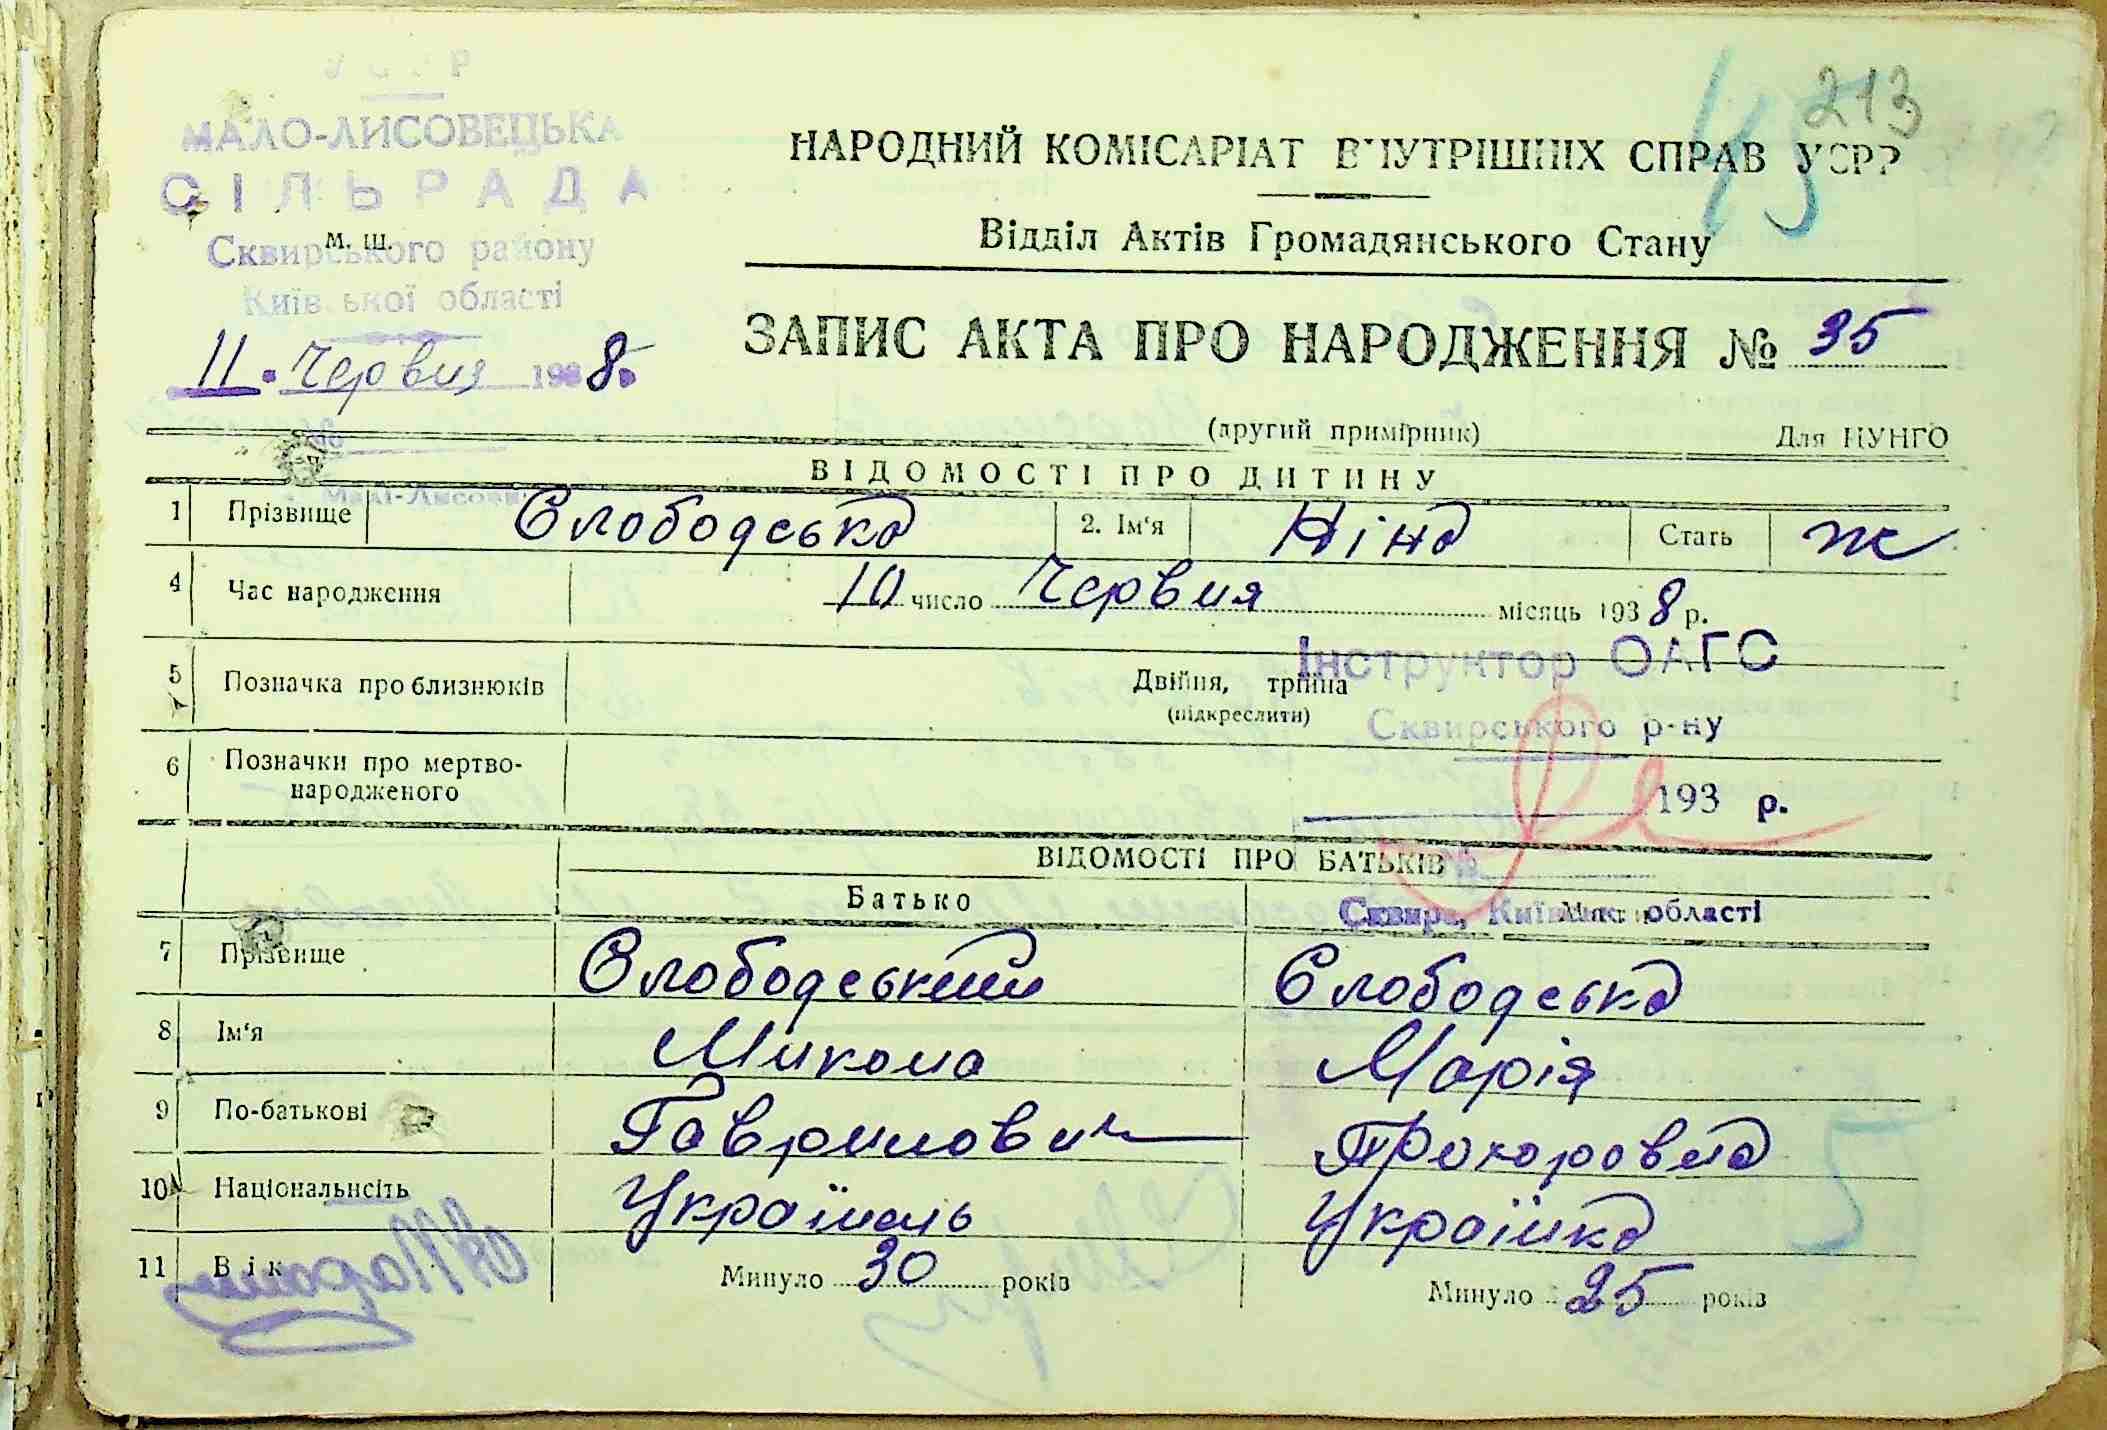 УСРР
МАЛО-ЛИСОВЕЦЬКА
СІЛЬРАДА
м. ш.
Сквирського району
Київської області
11. Червня 1938.
№
Малі-Лисовці
213
45
НАРОДНИЙ КОМІСАРІАТ ВНУТРІШНІХ СПРАВ УСРР
Відділ Актів Громадянського Стану
ЗАПИС АКТА ПРО НАРОДЖЕННЯ № 35
(другий примірник) Для ЦУНГО
ВІДОМОСТІ ПРО ДИТИНУ
1 Прізвище Слободська 2. Ім'я Ніна Стать ж
4 Час народження 10 число Червня місяць 1938 р.
Інструктор ОАГС
5 Позначка про близнюків Двійня, трійна
(підкреслити)
Сквирського р-ну
6 Позначки про мертво-
народженого
193 р.
ВІДОМОСТІ ПРО БАТЬКІВ
№
Батько
Сквира, Київськ. області
7 Прізвище Слободський Слободська
8 Ім'я Микола Марія
9 По-батькові Гаврилович Прохоровна
10 Національнсіть Українець Українка
11 Вік Минуло 30 років Минуло 25 років
5